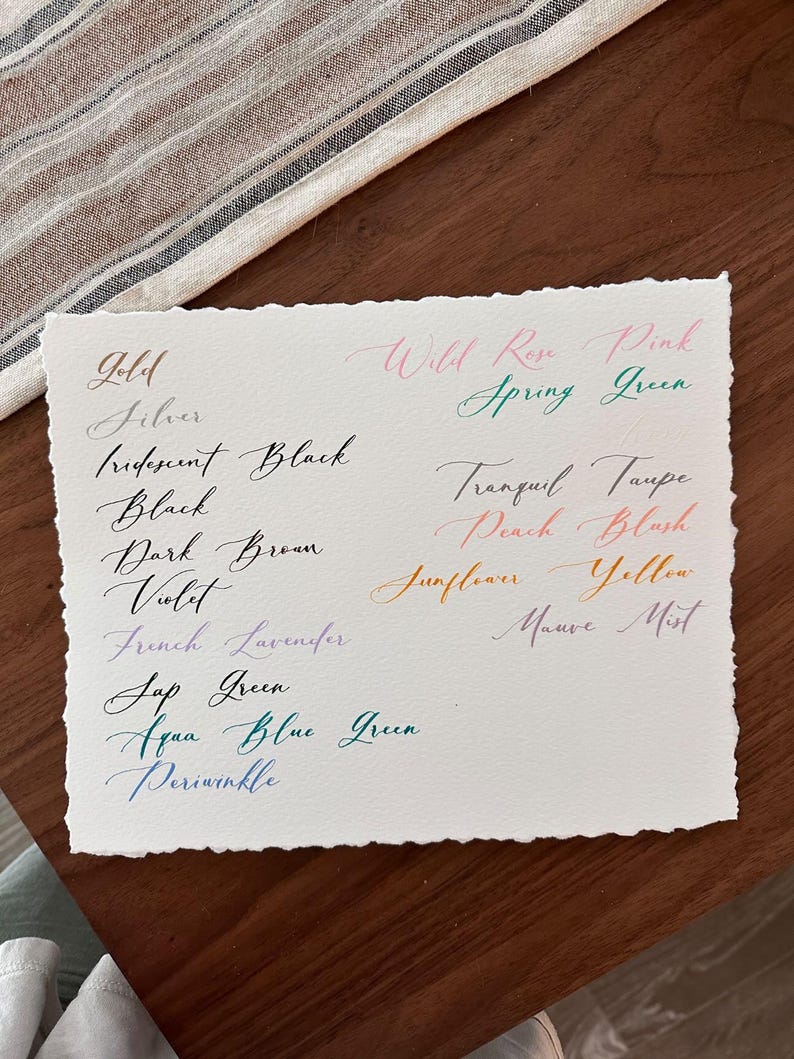 Gold
Silver
Iridescent Black
Black
Dark Brown
Violet
French Lavender
Sap Green
Aqua Blue Green
Periwinkle
Wild Rose Pink
Spring Green
Ivory
Tranquil Taupe
Peach Blush
Sunflower Yellow
Mauve Mist